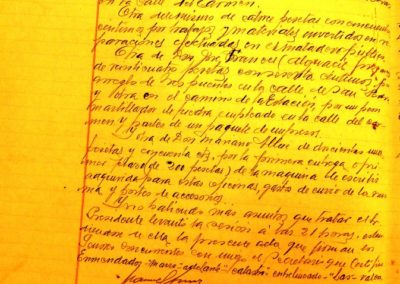 en la Calle del Carmen
Otra del mismo de catorce pesetas con cincuenta
centimos por trabajos y materiales invertidos en re
paraciones efectuadas en el matadero público
Otra de Don José Frances (Alguacil)
de veinticuatro pesetas con centimos, por
arreglo de los puentes en la calle de San
y otra en el camino de la Estación, por un jornal
martillador de piedra empleado en la calle del Car
men y portes de un paquete de impresos.
Y otra de Don Mariano de doscientas una
pesetas y cincuenta cts, por la primera entrega o pri
mer plazo de 200 pesetas) de la maquina de escribir
adquirida para estas oficinas, gastos de envio de la mis
ma y portes de accesorios
Y no habiendo mas asuntos que tratar el Sr.
Presidente levantó la sesion a las 21 horas, exten
diendose de ella la presente acta que firman los
Señores concurrentes con migo el Secretario que Certifico
Enmendados =